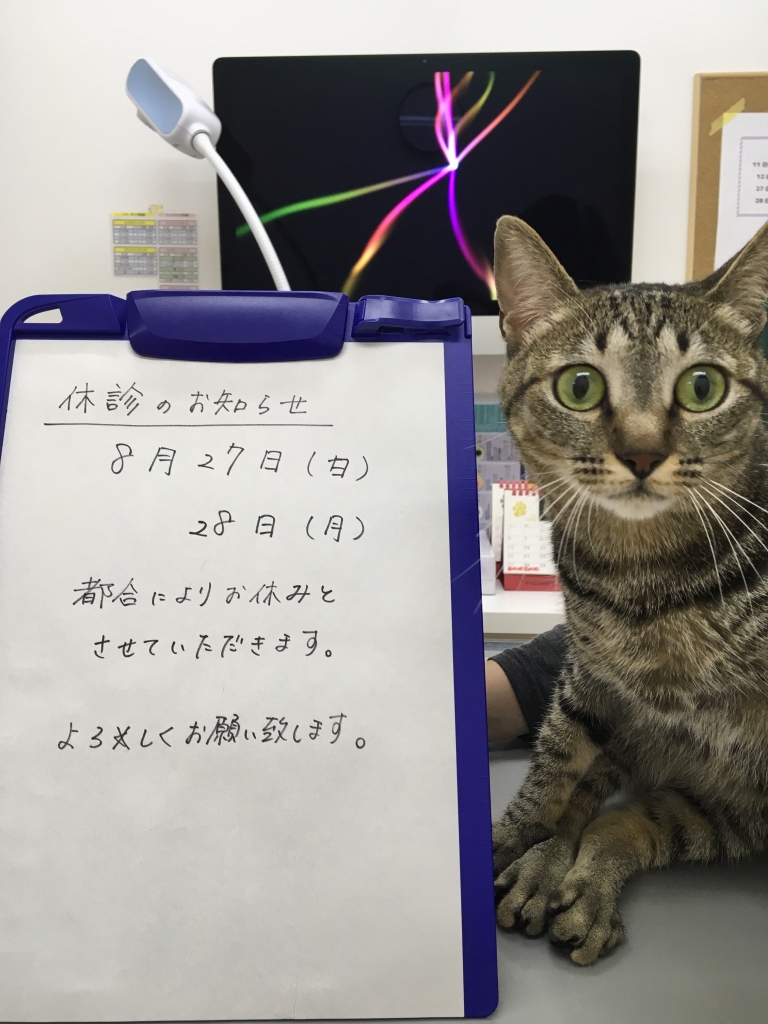 休診のお知らせ
8月27日(日)
28日(月)
都合によりお休みと
させていただきます。
よろしくお願い致します。